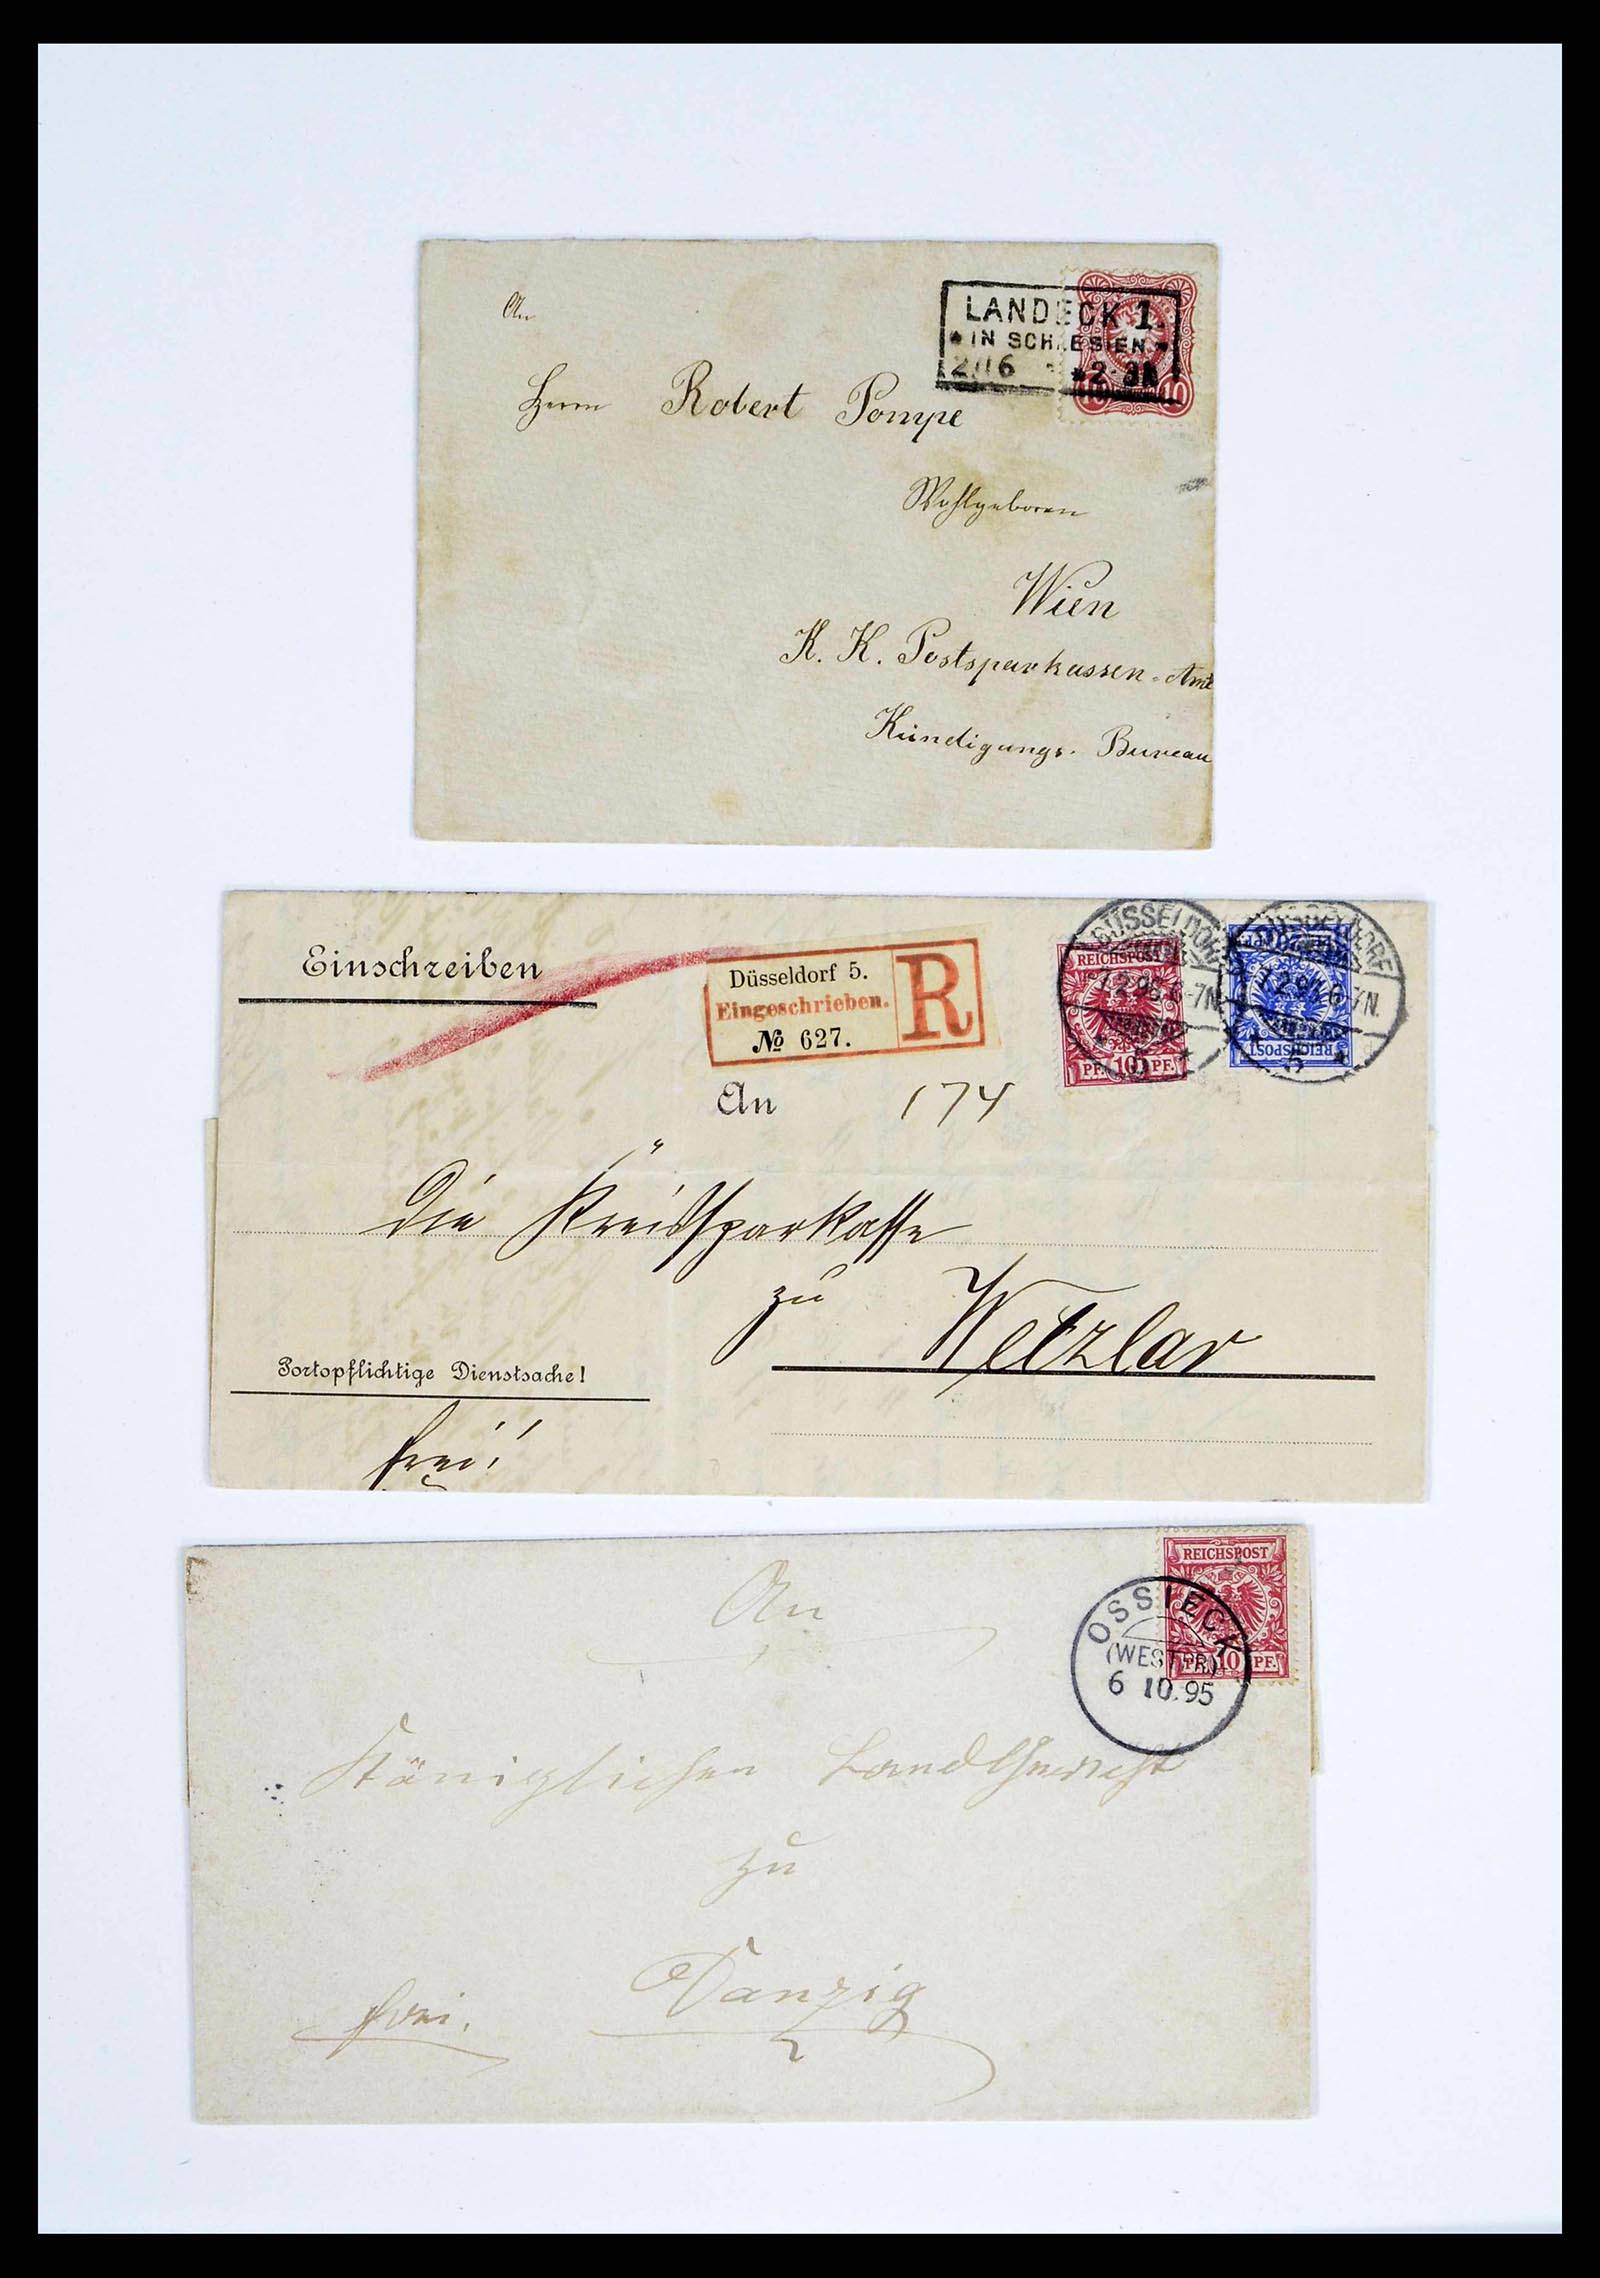 LANDECK 1.
* IN SCHLESIEN *
2/16 * 2-3N
10 10
An
Herrn Robert Pompe
Wohlgeboren
Wien
K. K. Postsparkassen-Amt
Kündigungs-Bureau
Einschreiben
Düsseldorf 5.
Eingeschrieben.
№ 627.
R
DÜSSELDORF
7.2.96.6-7N.
* 5 *
REICHSPOST
PF. 10 PF.
DÜSSELDORF
7.2.96.6-7N.
5 *
REICHSPOST
An 174
die Kreissparkasse
zu Wetzlar
Portopflichtige Dienstsache!
frei!
REICHSPOST
PF. 10 PF.
OSSIECK
(WESTPR)
6 10.95
An
Königlichen Landgericht
zu
Danzig
frei.